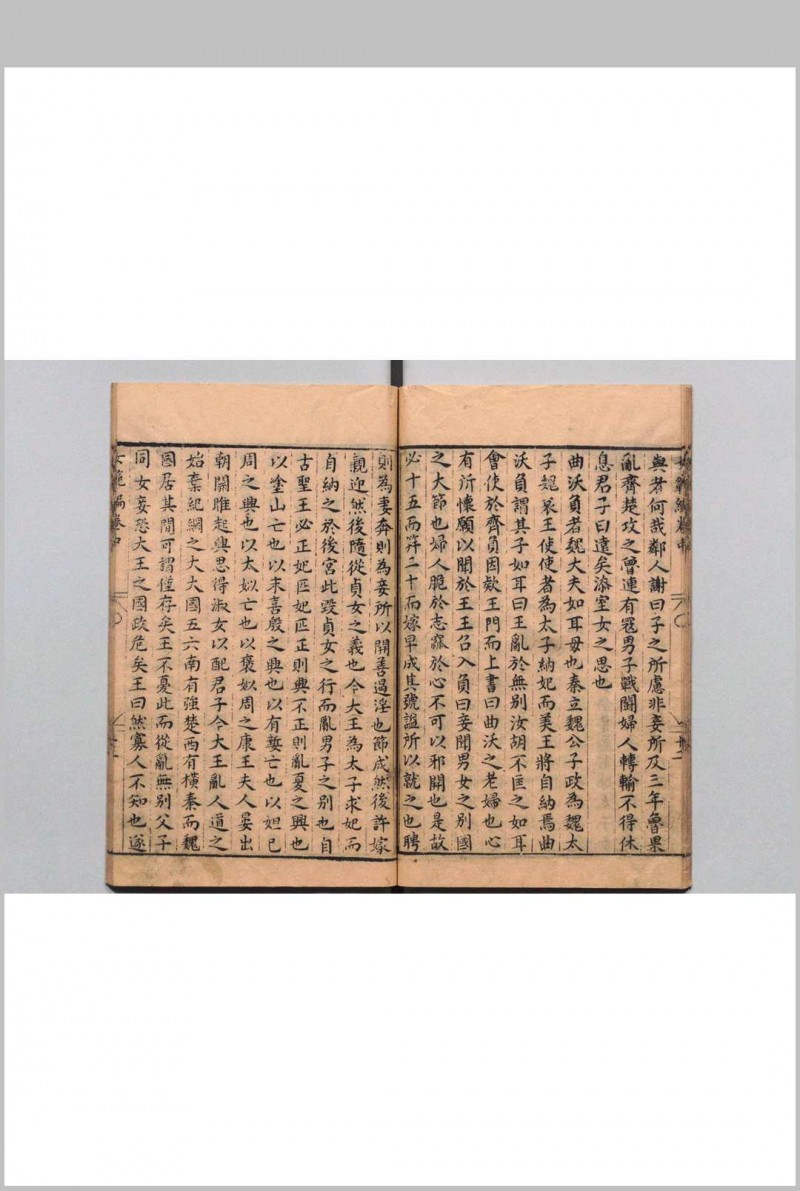 與者何哉鄰人謝曰子之所慮非妾所及三年魯果
亂齊楚攻之魯連有寇男子戰鬪婦人轉輸不得休
息君子曰遠矣漆室女之思也
曲沃負者魏大夫如耳母也秦立魏公子政為魏太
子魏哀王使使者為太子納妃而美王將自納焉曲
沃負謂其子如耳曰王亂於無別汝胡不匡之如耳
會使於齊負因款王門而上書曰曲沃之老婦也心
有所懷願以聞於王王召入負曰妾聞男女之別國
之大節也婦人脆於志窳於心不可以邪開也是故
必十五而筓二十而嫁早成其號諡所以就之也聘
則為妻奔則為妾所以開善遏淫也節成然後許嫁
親迎然後隨從貞女之義也今大王為太子求妃而
自納之於後宮此毀貞女之行而亂男子之別也自
古聖王必正妃匹妃匹正則興不正則亂夏之興也
以塗山亡也以末喜殷之興也以有㜪亡也以妲己
周之興也以太姒亡也以褒姒周之康王夫人晏出
朝關雎起興思得淑女以配君子今大王亂人道之
始棄紀綱之大大國五六南有強楚西有橫秦而魏
國居其間可謂僅存矣王不憂此而從亂無別父子
同女妾恐大王之國政危矣王曰然寡人不知也遂
女範編卷中